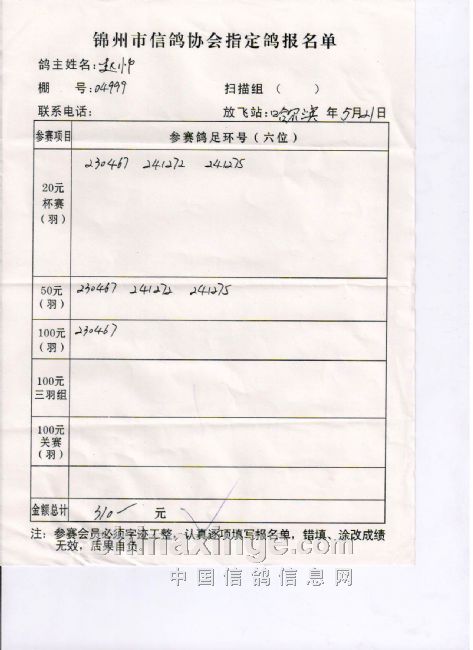 锦州市信鸽协会指定鸽报名单
鸽主姓名：赵帅
棚　号：04999　扫描组（　）
联系电话：　放飞站：哈尔滨　年 5月21日
参赛项目　参赛鸽足环号（六位）
20元
杯赛
（羽）
230467　241272　241275
50元
（羽）
230467　241272　241275
100元
（羽）
230467
100元
三羽组
100元
关赛
（羽）
金额总计　310　元
注：参赛会员必须字迹工整，认真逐项填写报名单，错填、涂改成绩
无效，后果自负。
chinaxinge.com
中国信鸽信息网